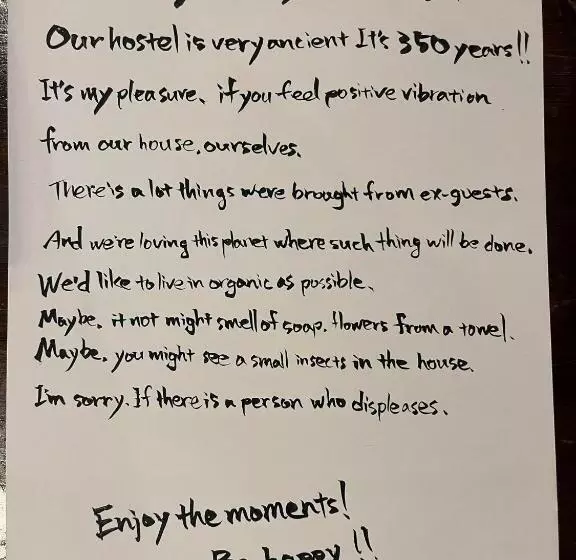 Our hostel is very ancient It's 350 years!!
It's my pleasure、if you feel positive vibration
from our house、ourselves、
There's a lot things were brought from ex-guests.
And we're loving this planet where such thing will be done.
We'd like to live in organic as possible、
Maybe. it not might smell of soap. flowers from a towel.
Maybe. you might see a small insects in the house.
I'm sorry. If there is a person who displeases、
Enjoy the moments!
Be happy!!